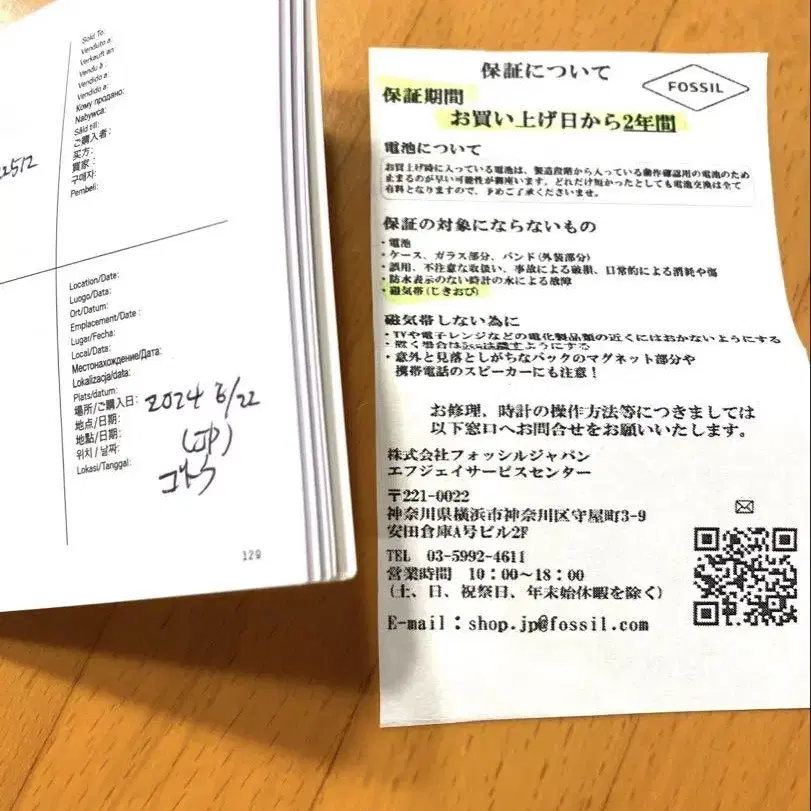 2512
Sold To:
Venduto a:
Verkauft an:
Vendu à :
Vendido a:
Vendido a:
Кому продано:
Nabywca:
Såld till:
ご購入者:
买方:
買家:
구매자:
Pembeli:
Location/Date:
Luogo/Data:
Ort/Datum:
Emplacement/Date :
Lugar/Fecha:
Local/Data:
Местонахождение/Дата:
Lokalizacja/data:
Plats/datum:
場所/ご購入日: 2024 6/22
地点/日期:
地點/日期:
위치 / 날짜:
Lokasi/Tanggal:
129
保証について
FOSSIL
保証期間
お買い上げ日から2年間
電池について
お買上げ時に入っている電池は、製造段階から入っている動作確認用の電池のため
止まるのが早い可能性が御座います。どれだけ短かったとしても電池交換は全て
有料となりますので、予めご了承くださいませ。
保証の対象にならないもの
・電池
・ケース、ガラス部分、バンド(外装部分)
・誤用、不注意な取扱い、事故による破損、日常的による消耗や傷
・防水表示のない時計の水による故障
・磁気帯(じきおび)
磁気帯しない為に
・TVや電子レンジなどの電化製品類の近くにはおかないようにする
・置く場合は5cmは離すようにする
・意外と見落としがちなバックのマグネット部分や
携帯電話のスピーカーにも注意！
お修理、時計の操作方法等につきましては
以下窓口へお問合せをお願いいたします。
株式会社フォッシルジャパン
エフジェイサービスセンター
〒221-0022
神奈川県横浜市神奈川区守屋町3-9
安田倉庫A号ビル2F
TEL 03-5992-4611
営業時間 10:00～18:00
(土、日、祝祭日、年末始休暇を除く)
E-mail：shop.jp@fossil.com